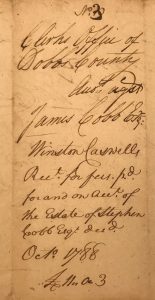 No. 3
Clerks Office of
Dobbs County
James Cobb Esq.
Winston Caswells
Rect. for fees pd.
for and on acct. of
the Estate of Stephen
Cobb Esqr. decd.
Octr. 1788
No. 3